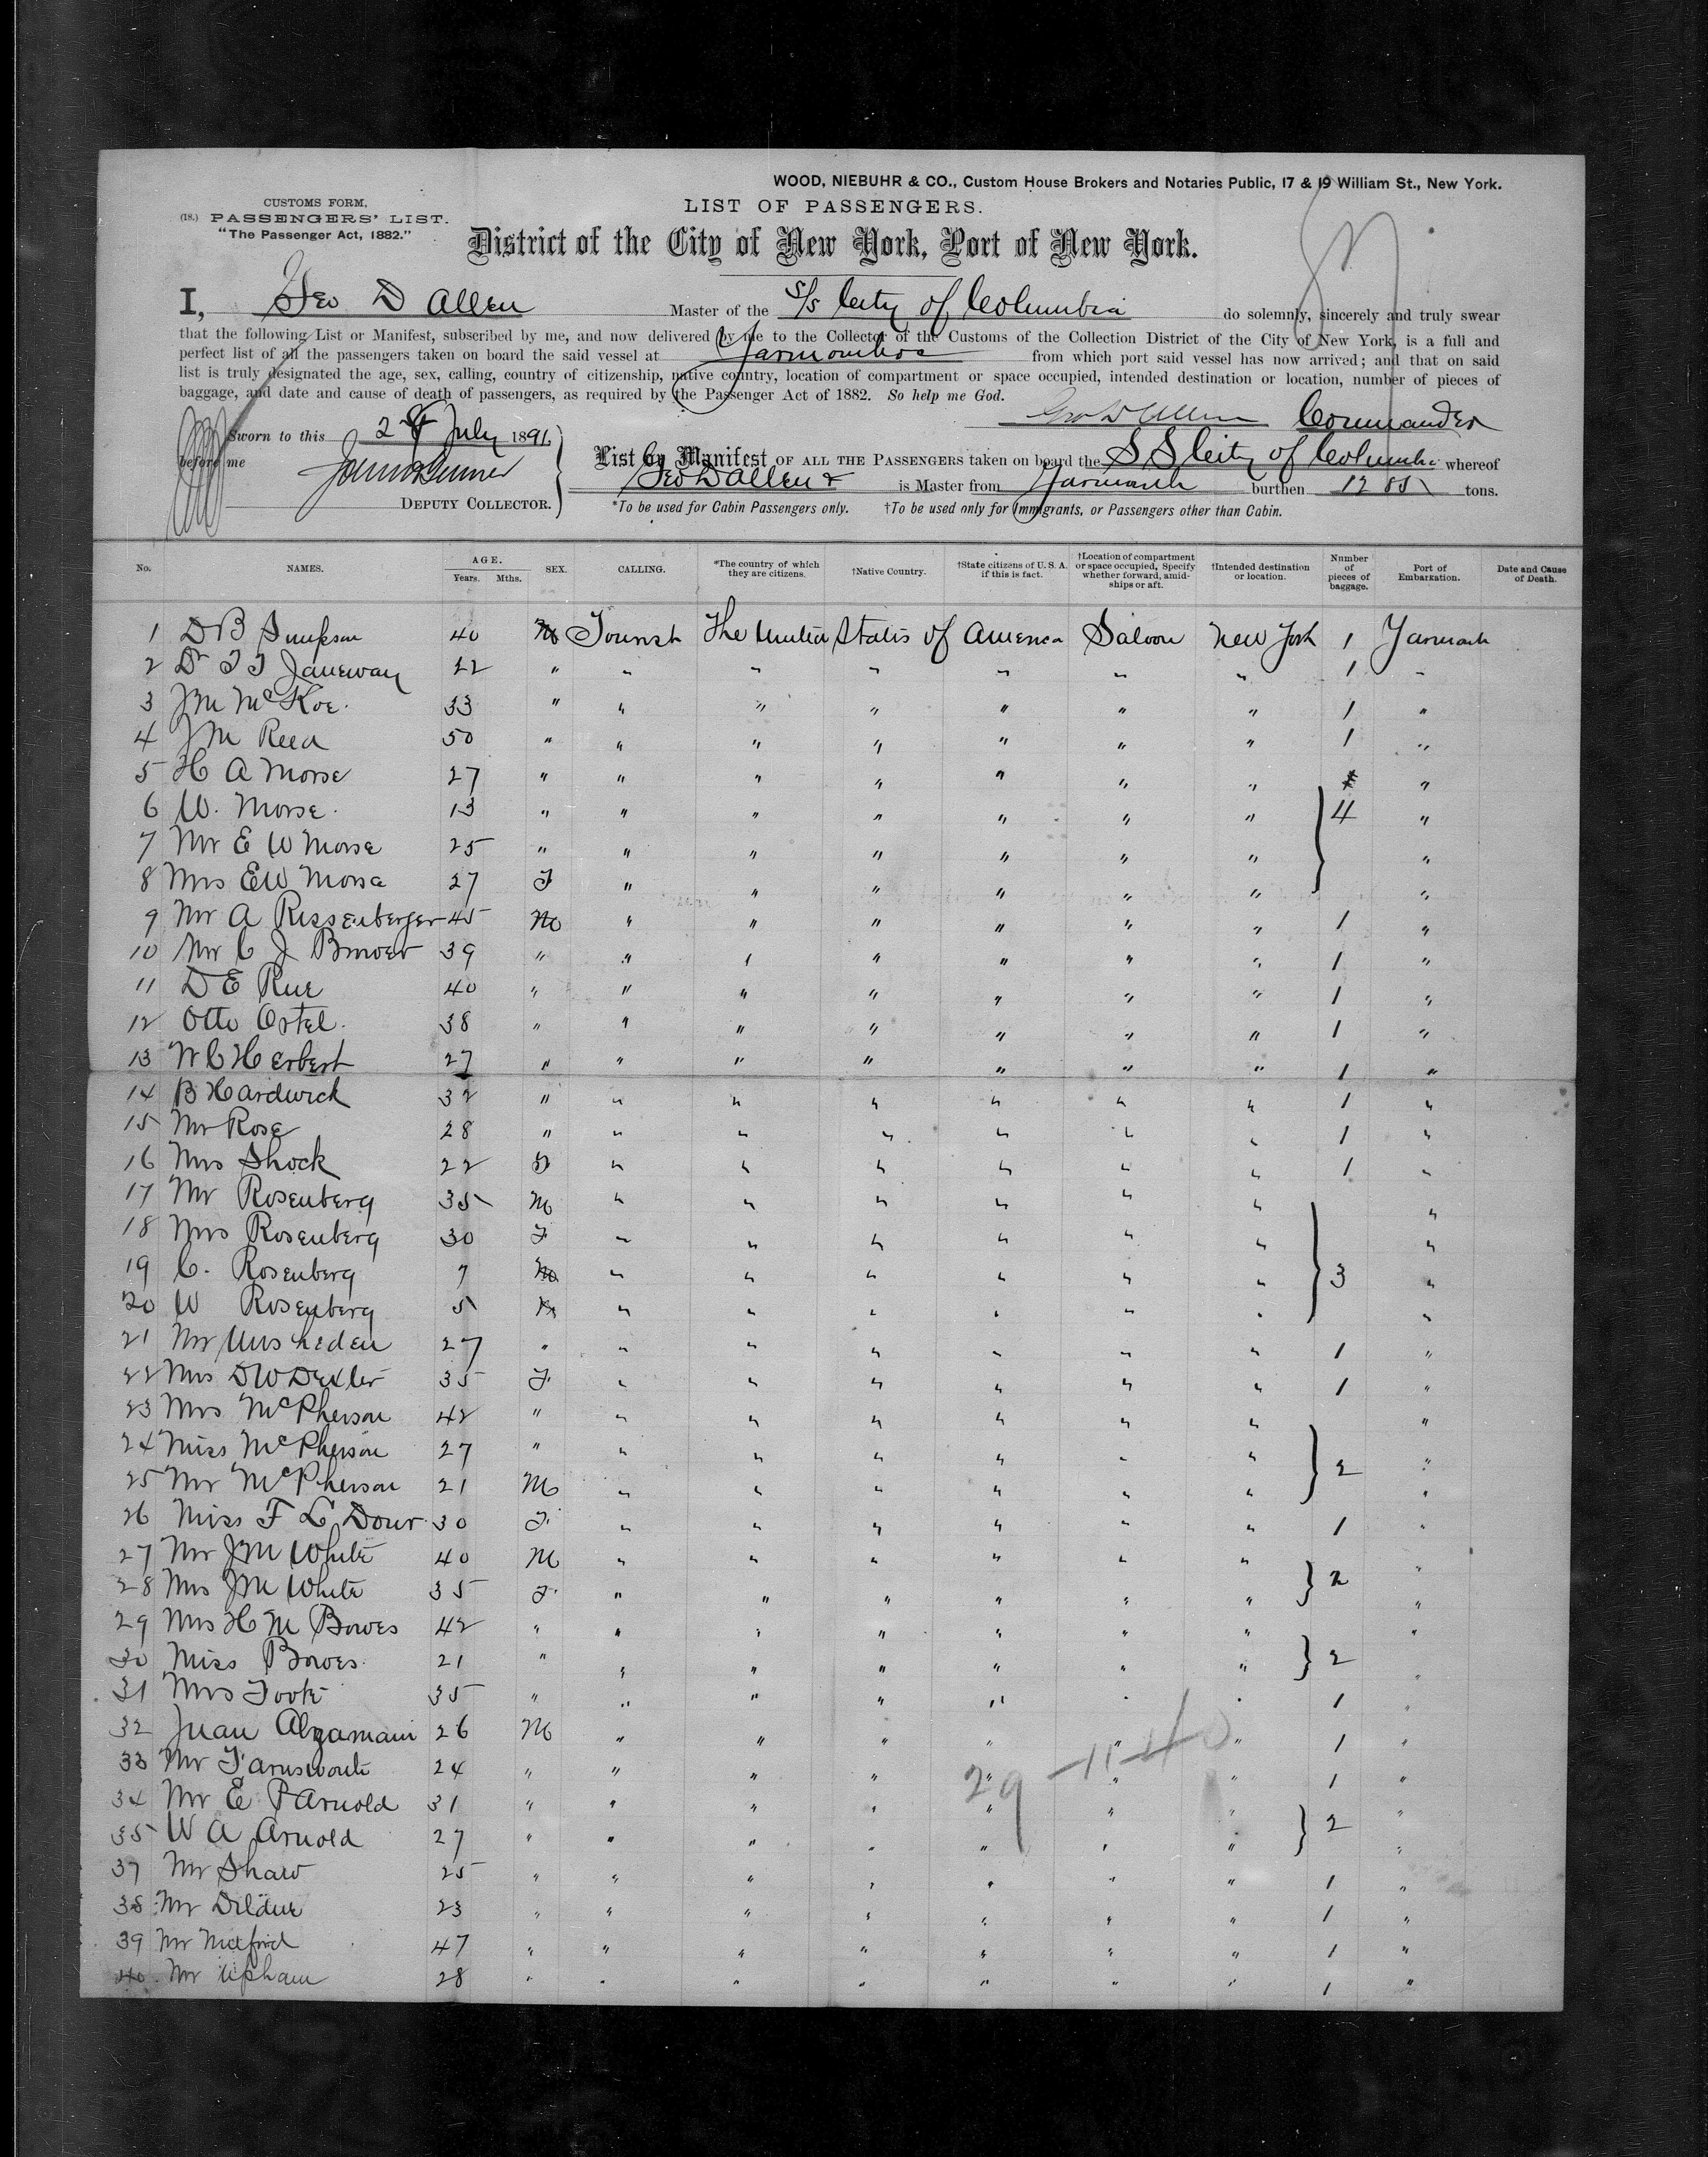 WOOD, NIEBUHR & CO., Custom House Brokers and Notaries Public, 17 & 19 William St., New York.
CUSTOMS FORM,
(18.) PASSENGERS' LIST.
"The Passenger Act, 1882."
LIST OF PASSENGERS.
District of the City of New York, Port of New York.
I, Geo D Allen Master of the S/S City of Columbia do solemnly, sincerely and truly swear
that the following List or Manifest, subscribed by me, and now delivered by me to the Collector of the Customs of the Collection District of the City of New York, is a full and
perfect list of all the passengers taken on board the said vessel at from which port said vessel has now arrived; and that on said
list is truly designated the age, sex, calling, country of citizenship, native country, location of compartment or space occupied, intended destination or location, number of pieces of
baggage, and date and cause of death of passengers, as required by the Passenger Act of 1882. So help me God.
Geo D Allen Commander
Sworn to this July 1891
before me
DEPUTY COLLECTOR.
List or Manifest OF ALL THE PASSENGERS taken on board the S S City of Columbia whereof
Geo D Allen is Master from Yarmouth burthen tons.
*To be used for Cabin Passengers only. †To be used only for Immigrants, or Passengers other than Cabin.
No. NAMES. AGE. Years. Mths. SEX. CALLING. *The country of which they are citizens. †Native Country. †State citizens of U. S. A. if this is fact. †Location of compartment or space occupied, Specify whether forward, amidships or aft. †Intended destination or location. Number of pieces of baggage. Port of Embarkation. Date and Cause of Death.
1 D B Simpson 40 M Tourist The United States of America Saloon New York 1 Yarmouth
2 Dr Janeway 22 " " " " " " " 1 "
3 J M McKoe 33 " " " " " " " 1 "
4 J M Reed 50 " " " " " " " 1 "
5 H A Morse 27 " " " " " " " "
6 W. Morse 13 " " " " " " " 4 "
7 Mr E W Morse 25 " " " " " " " "
8 Mrs E W Morse 27 F " " " " " " "
9 Mr A Rissenberger 45 M " " " " " " 1 "
10 Mr C J Brower 39 " " " " " " " 1 "
11 D E Rue 40 " " " " " " " 1 "
12 Otto Ostel 38 " " " " " " " 1 "
13 W C Herbert 27 " " " " " " " 1 "
14 B Hardwick 32 " " " " " " " 1 "
15 Mr Rose 28 " " " " " " " 1 "
16 Mrs Shock 22 F " " " " " " 1 "
17 Mr Rosenberg 35 M " " " " " " "
18 Mrs Rosenberg 30 F " " " " " " "
19 C. Rosenberg 7 M " " " " " " 3 "
20 W Rosenberg 5 M " " " " " " "
21 Mr 27 " " " " " " " 1 "
22 Mrs D W Dexter 35 F " " " " " " 1 "
23 Mrs McPherson 42 " " " " " " " "
24 Miss McPherson 27 " " " " " " " 2 "
25 Mr McPherson 21 M " " " " " " "
26 Miss F L Dow 30 F " " " " " " 1 "
27 Mr J M White 40 M " " " " " " 2 "
28 Mrs J M White 35 F " " " " " " "
29 Mrs H M Bowes 42 " " " " " " " "
30 Miss Bowes 21 " " " " " " " 2 "
31 Mrs Foote 35 " " " " " " " 1 "
32 Juan 26 M " " " " " " 1 "
33 Mr Farnsworth 24 " " " " " " " 1 "
34 Mr E P Arnold 31 " " " " " " " 2 "
35 W A Arnold 27 " " " " " " " "
37 Mr Shaw 25 " " " " " " " 1 "
38 Mr Dildue 23 " " " " " " " 1 "
39 Mr 47 " " " " " " " 1 "
40 Mr Upham 28 " " " " " " " 1 "
29